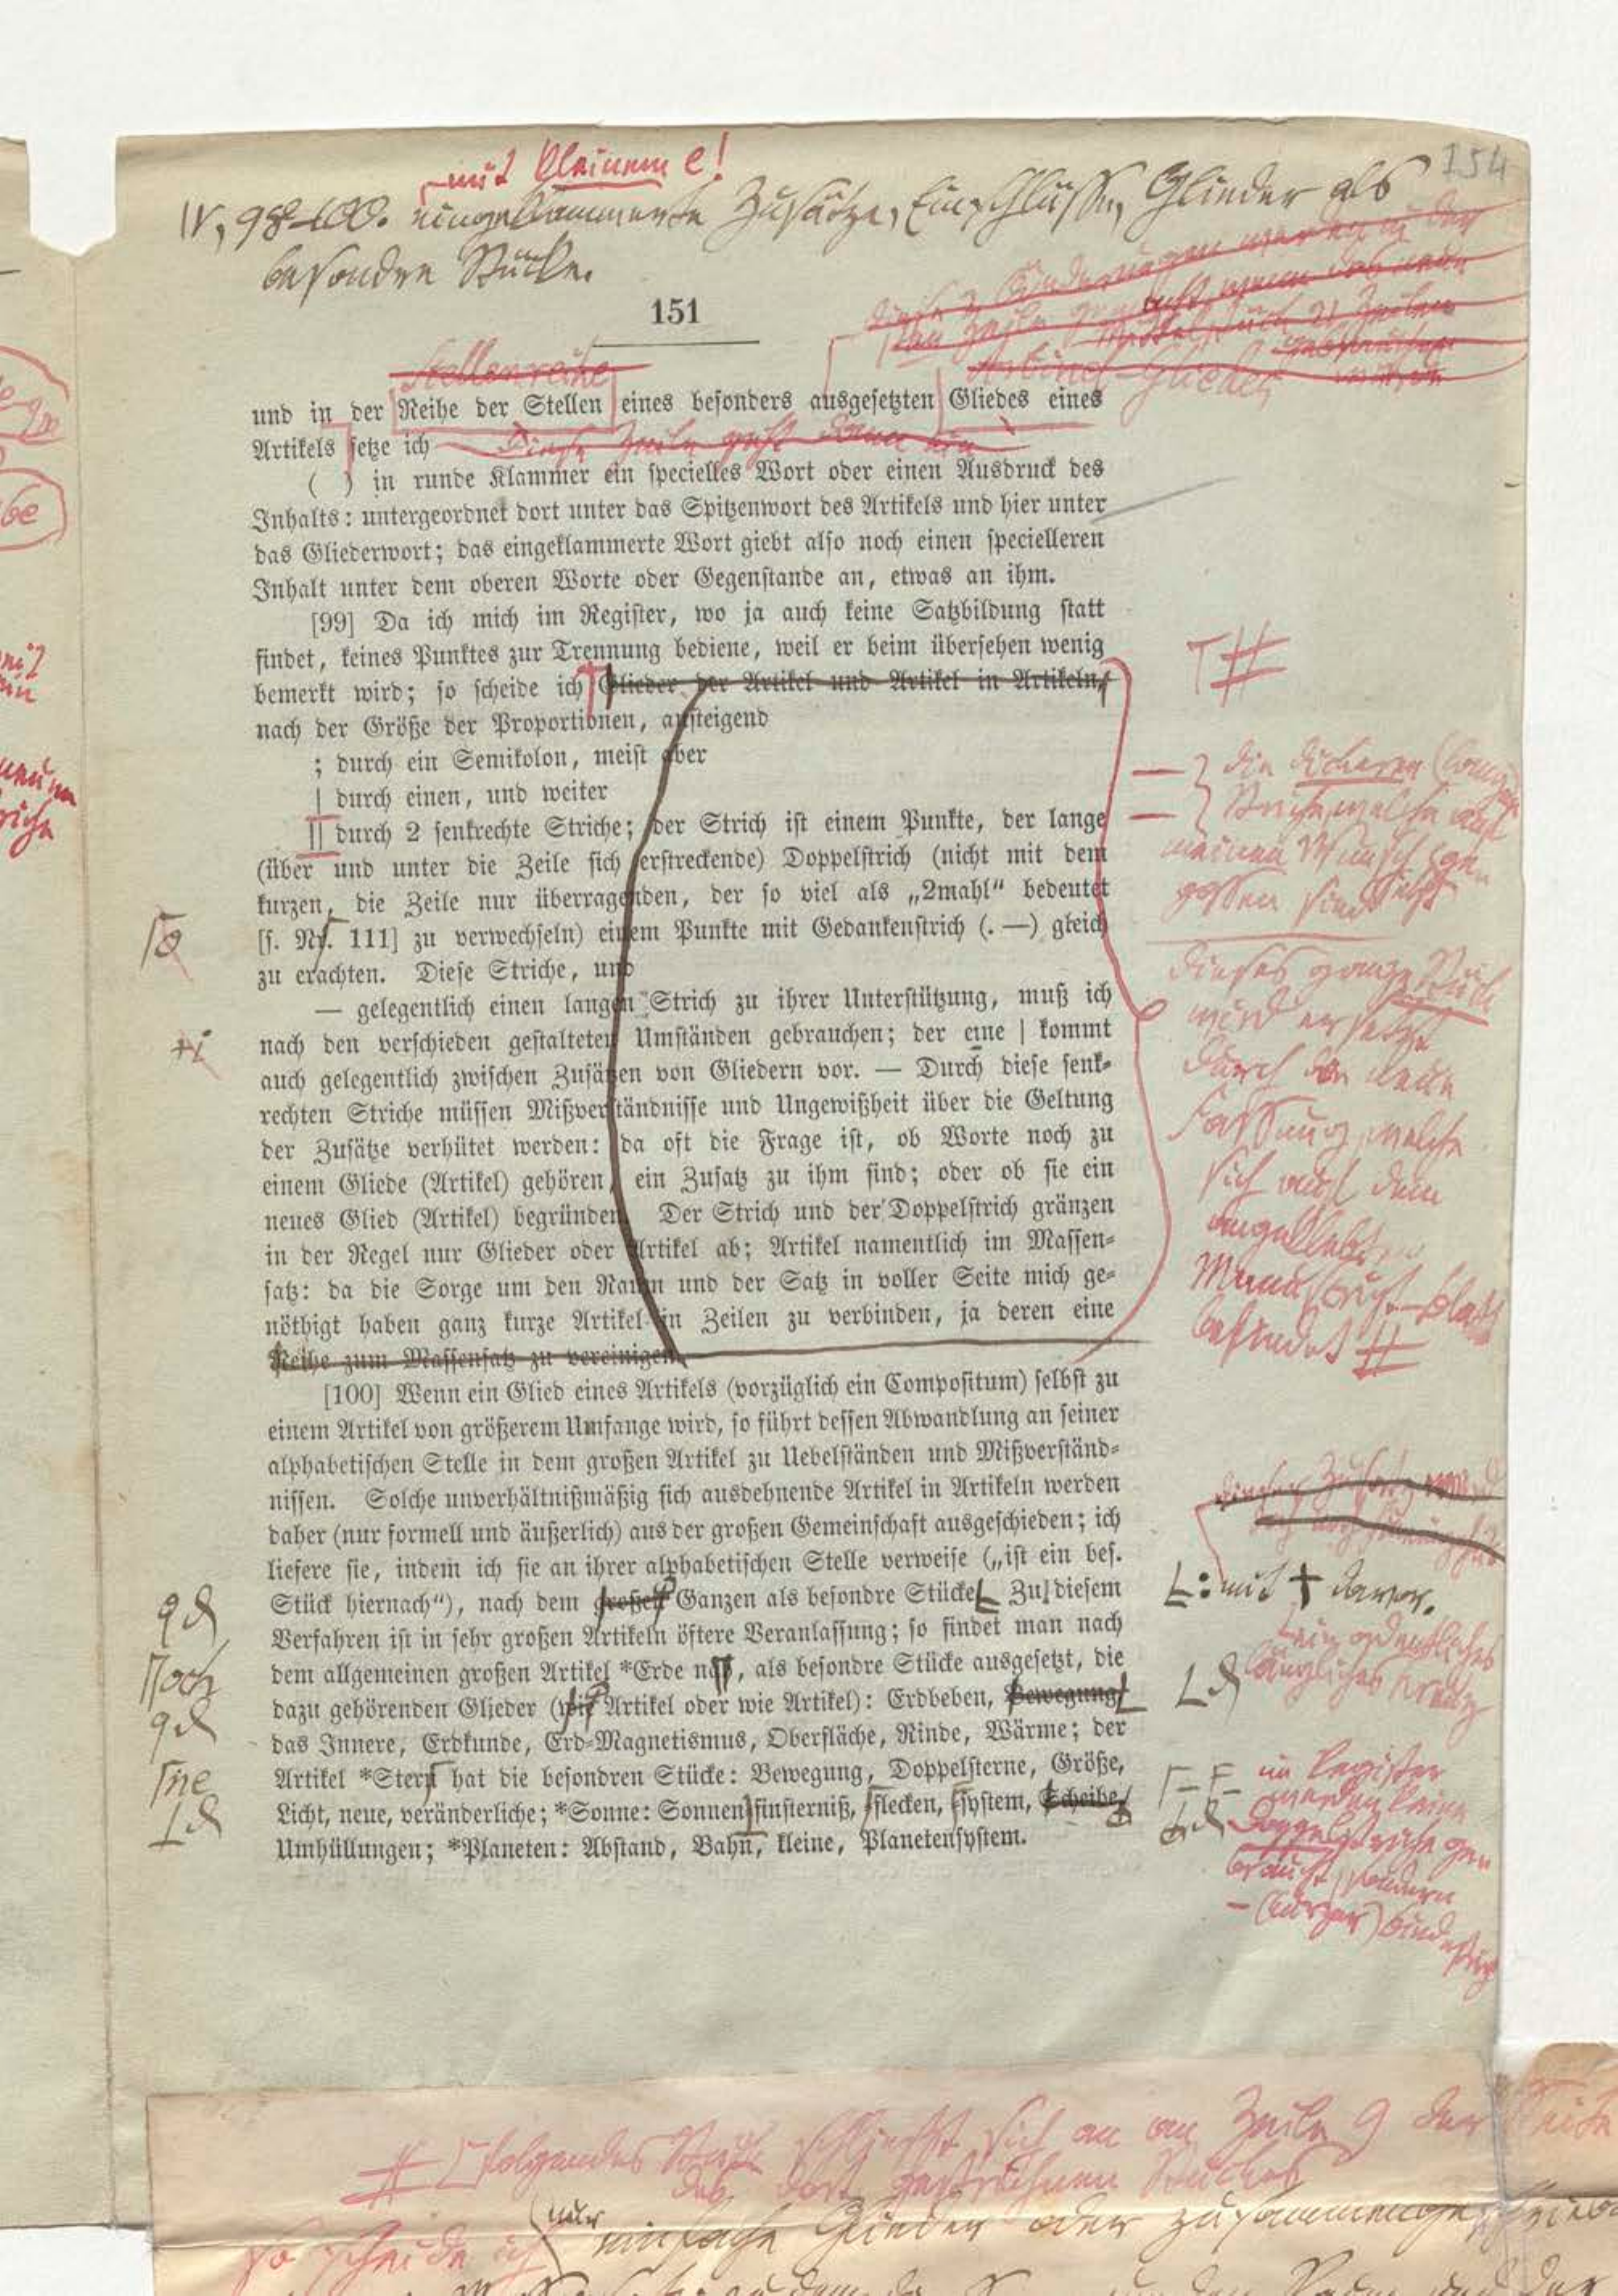 154
mit kleinem e!
IV, 98-100. eingeklammerte Zusätze, Einschlüsse, Glieder als
besondre Stücke.
151
Stellenreihe
Artikel-Glieder
und in der Reihe der Stellen eines besonders ausgesetzten Gliedes eines
Artikels setze ich
( ) in runde Klammer ein specielles Wort oder einen Ausdruck des
Inhalts: untergeordnet dort unter das Spitzenwort des Artikels und hier unter
das Gliederwort; das eingeklammerte Wort giebt also noch einen specielleren
Inhalt unter dem oberen Worte oder Gegenstande an, etwas an ihm.
[99] Da ich mich im Register, wo ja auch keine Satzbildung statt
findet, keines Punktes zur Trennung bediene, weil er beim übersehen wenig
bemerkt wird; so scheide ich Glieder der Artikel und Artikel in Artikeln,
nach der Größe der Proportionen, aufsteigend
; durch ein Semikolon, meist aber
| durch einen, und weiter
|| durch 2 senkrechte Striche; der Strich ist einem Punkte, der lange
(über und unter die Zeile sich erstreckende) Doppelstrich (nicht mit dem
kurzen, die Zeile nur überragenden, der so viel als „2mahl" bedeutet
[s. Nr. 111] zu verwechseln) einem Punkte mit Gedankenstrich (. —) gleich
zu erachten. Diese Striche, und
— gelegentlich einen langen Strich zu ihrer Unterstützung, muß ich
nach den verschieden gestalteten Umständen gebrauchen; der eine | kommt
auch gelegentlich zwischen Zusätzen von Gliedern vor. — Durch diese senk-
rechten Striche müssen Mißverständnisse und Ungewißheit über die Geltung
der Zusätze verhütet werden: da oft die Frage ist, ob Worte noch zu
einem Gliede (Artikel) gehören, ein Zusatz zu ihm sind; oder ob sie ein
neues Glied (Artikel) begründen. Der Strich und der Doppelstrich gränzen
in der Regel nur Glieder oder Artikel ab; Artikel namentlich im Massen-
satz: da die Sorge um den Raum und der Satz in voller Seite mich ge-
nöthigt haben ganz kurze Artikel in Zeilen zu verbinden, ja deren eine
Reihe zum Massensatz zu vereinigen.
[100] Wenn ein Glied eines Artikels (vorzüglich ein Compositum) selbst zu
einem Artikel von größerem Umfange wird, so führt dessen Abwandlung an seiner
alphabetischen Stelle in dem großen Artikel zu Uebelständen und Mißverständ-
nissen. Solche unverhältnißmäßig sich ausdehnende Artikel in Artikeln werden
daher (nur formell und äußerlich) aus der großen Gemeinschaft ausgeschieden; ich
liefere sie, indem ich sie an ihrer alphabetischen Stelle verweise („ist ein bes.
Stück hiernach"), nach dem großen Ganzen als besondre Stücke Zu diesem
Verfahren ist in sehr großen Artikeln öftere Veranlassung; so findet man nach
dem allgemeinen großen Artikel *Erde noch, als besondre Stücke ausgesetzt, die
dazu gehörenden Glieder (wie Artikel oder wie Artikel): Erdbeben, Bewegung
das Innere, Erdkunde, Erd-Magnetismus, Oberfläche, Rinde, Wärme; der
Artikel *Stern hat die besondren Stücke: Bewegung, Doppelsterne, Größe,
Licht, neue, veränderliche; *Sonne: Sonnenfinsterniß, flecken, system, Scheibe,
Umhüllungen; *Planeten: Abstand, Bahn, kleine, Planetensystem.
die dickeren (langen)
Striche, welche auf
meinen Wunsch ge-
gossen sind
dieses ganze Stück
wird ersetzt
durch die neue
Fassung, welche
sich auf dem
angeklebten
Manuscript-Blatt
befindet #
: mit † davor.
kein ordentliches
längliches Kreuz
im Register
werden keine
Doppelstriche ge-
braucht, sondern
- (kurzer) Bindestrich
# folgendes Stück schließt sich an an Zeile 9 der Seite
des dort gestrichnen Stückes
so scheide ich nur einfache Glieder oder